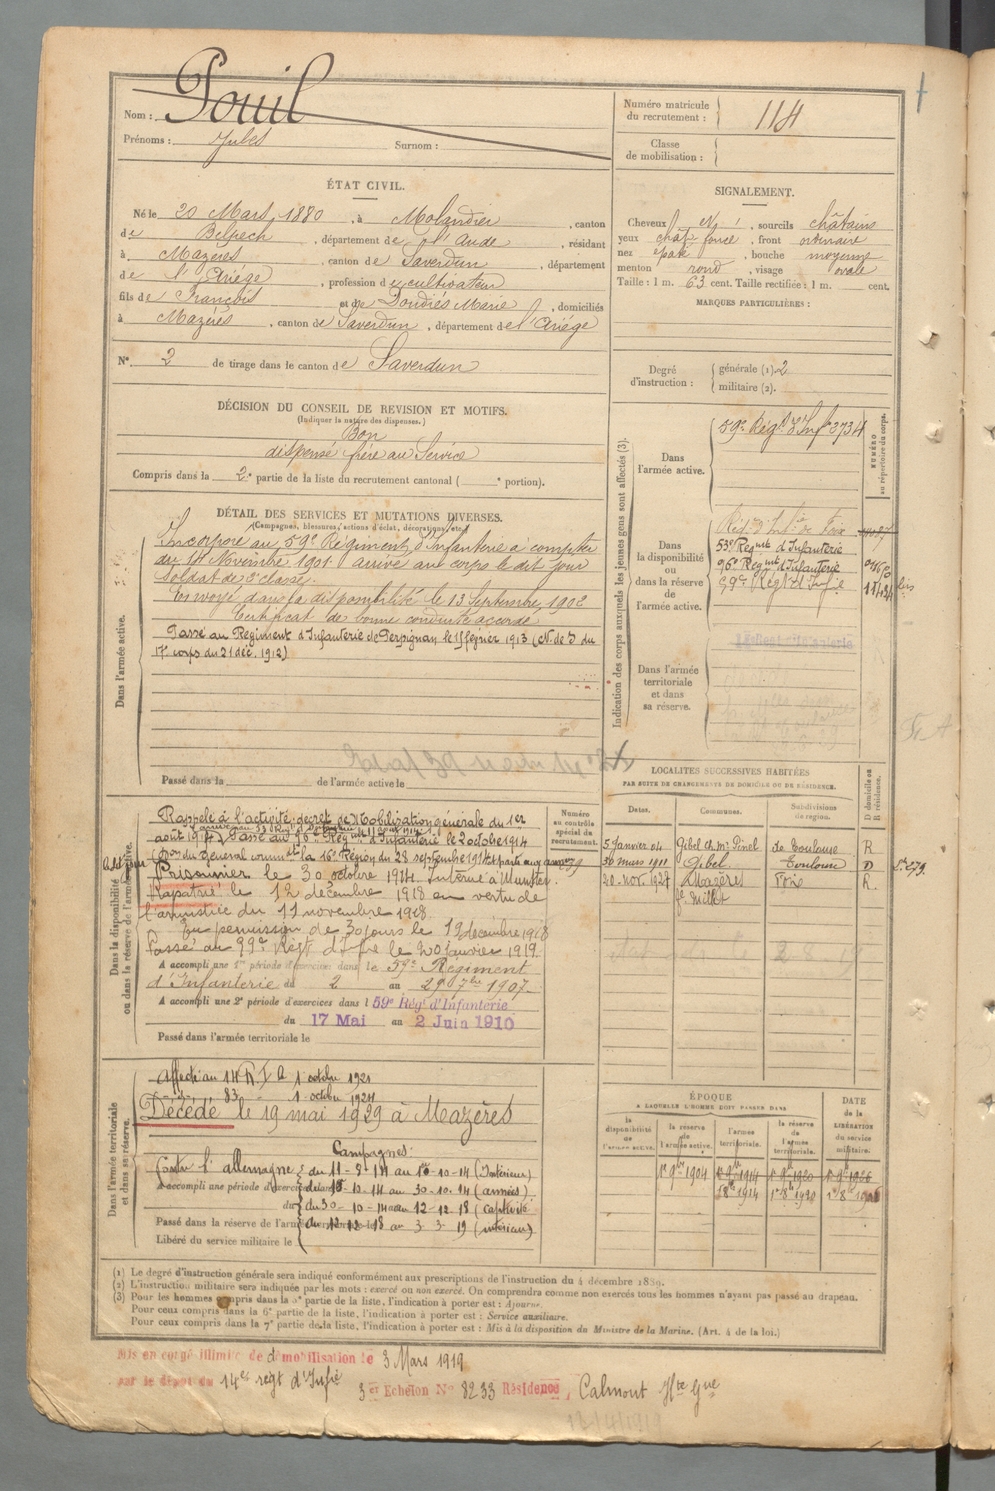 Nom : Pouil
Prénoms : Jules Surnom :
Numéro matricule du recrutement : 114
Classe de mobilisation :
ÉTAT CIVIL.
Né le 20 Mars 1880, à Molandier, canton
de Belpech, département de l'Aude, résidant
à Mazères, canton de Saverdun, département
de l'Ariège, profession de cultivateur
fils de François et de Doudiès Marie, domiciliés
à Mazères, canton de Saverdun, département de l'Ariège
N° 2 de tirage dans le canton de Saverdun
SIGNALEMENT.
Cheveux, sourcils châtains
yeux chât foncé, front ordinaire
nez épais, bouche moyenne
menton rond, visage ovale
Taille : 1 m. 63 cent. Taille rectifiée : 1 m. cent.
MARQUES PARTICULIÈRES :
Degré d'instruction : générale (1) 2
militaire (2).
DÉCISION DU CONSEIL DE REVISION ET MOTIFS.
(Indiquer la nature des dispenses.)
Bon
dispensé frère au Service
Compris dans la 2e partie de la liste du recrutement cantonal ( e portion).
DÉTAIL DES SERVICES ET MUTATIONS DIVERSES.
(Campagnes, blessures, actions d'éclat, décorations, etc.)
Dans l'armée active.
Incorporé au 59e Régiment d'Infanterie à compter
du 14 Novembre 1901. arrivé au corps le dit jour
soldat de 2e classe.
Envoyé dans la disponibilité le 13 Septembre 1902
Certificat de bonne conduite accordé
Passé au Régiment d'Infanterie de Perpignan le 1er février 1913 (N. de S. du
17e corps du 21 déc. 1912)
Passé dans la de l'armée active le
Indication des corps auxquels les jeunes gens sont affectés (3).
NUMÉRO au répertoire du corps.
Dans l'armée active.
59e Régt d'Infie 3734
Dans la disponibilité ou dans la réserve de l'armée active.
Régt d'Infie de Foix
53e Regimt d'Infanterie
96e Regimt d'Infanterie
99e Régt d'Infie
Dans l'armée territoriale et dans sa réserve.
Dans la disponibilité ou dans la réserve de l'armée active.
Rappelé à l'activité, décret de Mobilisation générale du 1er
août 1914. Passé au 96e Regmt d'Infanterie le 2 octobre 1914
Don du Général commt la 16e Région du 28 septembre 1914 et parti aux armées
Prisonnier le 30 octobre 1914. Interné à Munster.
Rapatrié le 12 décembre 1918 en vertu de
l'armistice du 11 novembre 1918.
En permission de 30 jours le 12 décembre 1918
Passé au 99e Régt d'Infie le 20 Janvier 1919.
A accompli une 1re période d'exercices dans le 59e Régiment
d'Infanterie du 2 au 29 7bre 1907.
A accompli une 2e période d'exercices dans l 59e Rég't d'Infanterie
du 17 Mai au 2 Juin 1910
Passé dans l'armée territoriale le
Numéro au contrôle spécial du recrutement.
LOCALITÉS SUCCESSIVES HABITÉES
PAR SUITE DE CHANGEMENTS DE DOMICILE OU DE RÉSIDENCE.
Dates. Communes. Subdivisions de région. D domicile ou R résidence.
5 Janvier 04 Gibel ch. Mr Pinel de Toulouse R
30 mars 1911 Gibel Toulouse D
20 nov. 1927 Mazères Foix R.
Millet
Dans l'armée territoriale et dans sa réserve.
Affecté au 14 R.I.A 1 octobre 1921
83 1 octobre 1924
Décédé le 19 mai 1929 à Mazères
Campagnes:
Contre l'allemagne du 11-8-14 au 10-10-14 (Intérieur)
A accompli une période d'exercices du 10-10-14 au 30-10-14 (armées)
du 30-10-14 au 12-12-18 (captivité
Passé dans la réserve de l'armée du 12-12-18 au 3-3-19 (intérieur)
Libéré du service militaire le
ÉPOQUE
A LAQUELLE L'HOMME DOIT PASSER DANS
DATE de la LIBÉRATION du service militaire.
la disponibilité de l'armée active. la réserve de l'armée active. l'armée territoriale. la réserve de l'armée territoriale.
1er 9bre 1904 1er 9bre 1914 1er 9bre 1920 1er 9bre 1926
(1) Le degré d'instruction générale sera indiqué conformément aux prescriptions de l'instruction du 4 décembre 1889.
(2) L'instruction militaire sera indiquée par les mots : exercé ou non exercé. On comprendra comme non exercés tous les hommes n'ayant pas passé au drapeau.
(3) Pour les hommes compris dans la 5e partie de la liste, l'indication à porter est : Ajourné.
Pour ceux compris dans la 6e partie de la liste, l'indication à porter est : Service auxiliaire.
Pour ceux compris dans la 7e partie de la liste, l'indication à porter est : Mis à la disposition du Ministre de la Marine. (Art. 4 de la loi.)
Mis en congé illimité de démobilisation le 3 Mars 1919
par le dépôt du 14e régt d'Infie
3er Echelon N° 8233 Résidence, Calmont Hte Gne